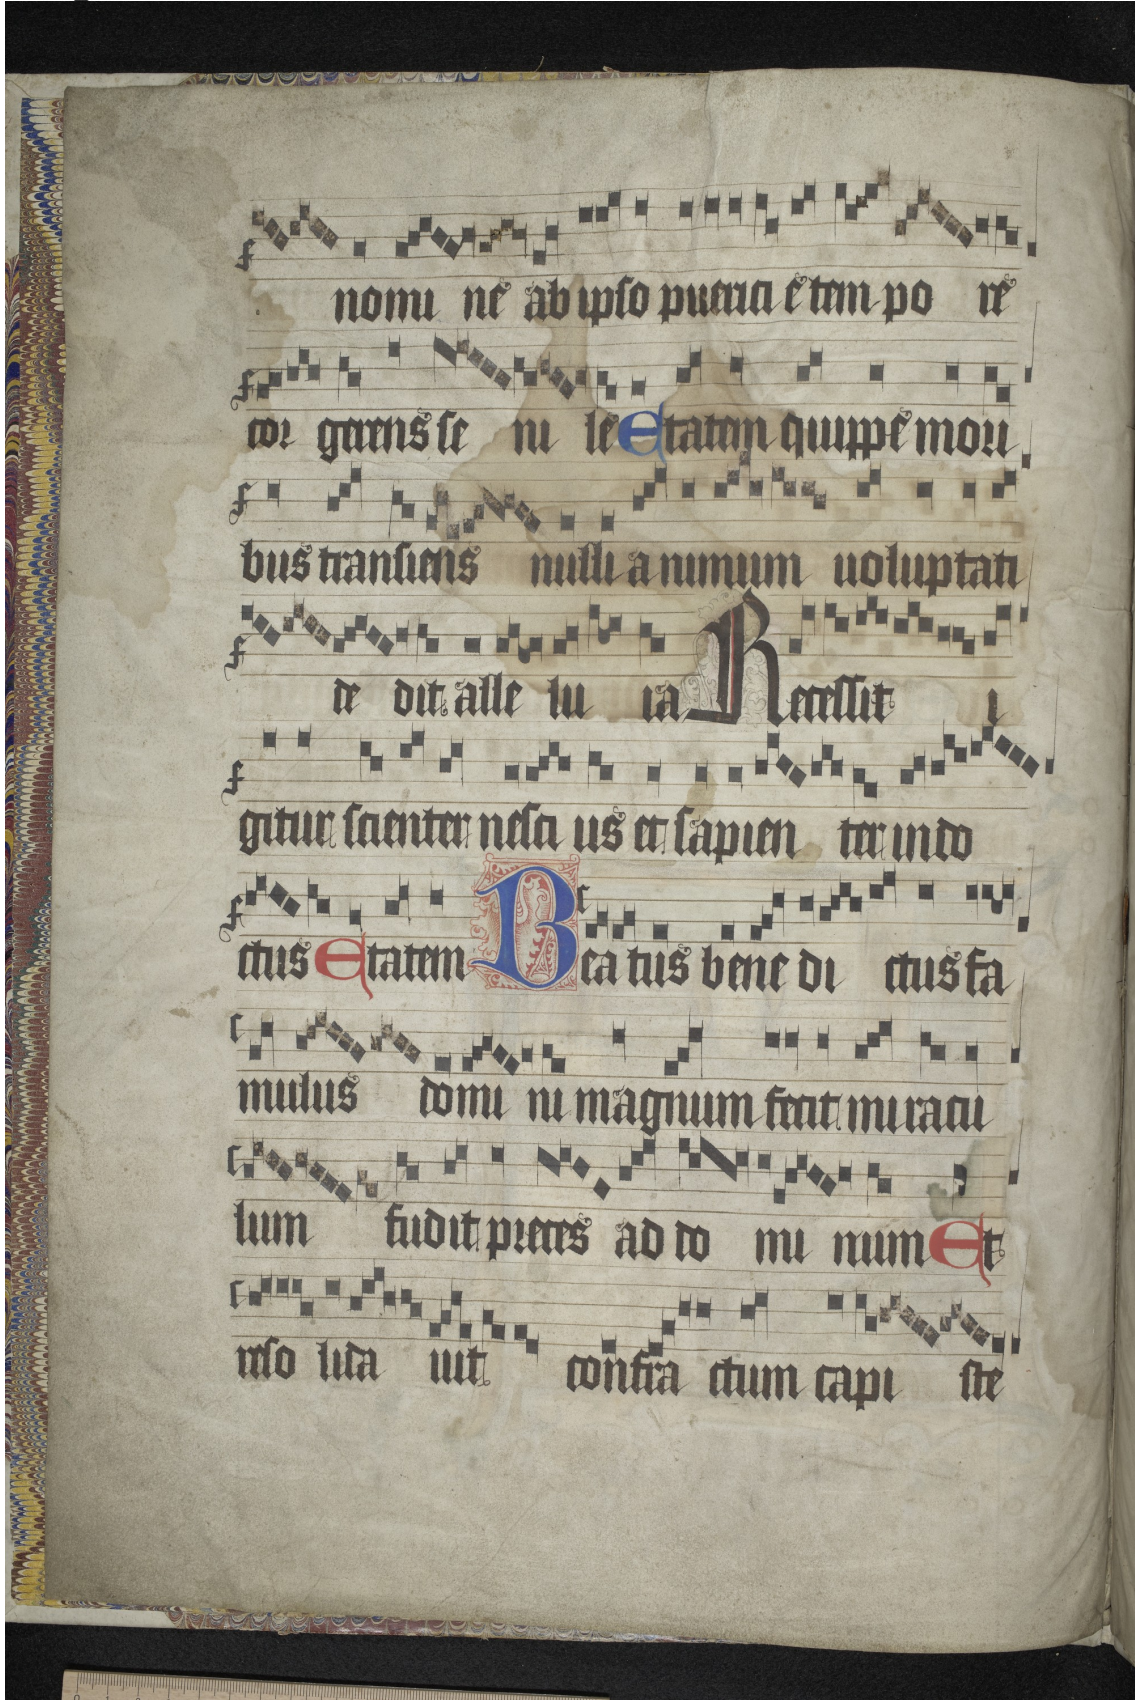 nomi nē ab ipſo puerici ē tem po rē
cor gerens ſe ni lē Etatem quippē mori
bus transiens nulli animum uoluptati
de dit alle lu ia Receſſit i
gitur ſcienter neſci us et ſapien ter in do
ctus Etatem Bea tus bene di ctus fa
mulus domi ni magnum fecit miracu
lum fudit preces ad do mi num Et
reſo lida uit confra ctum capi ſte